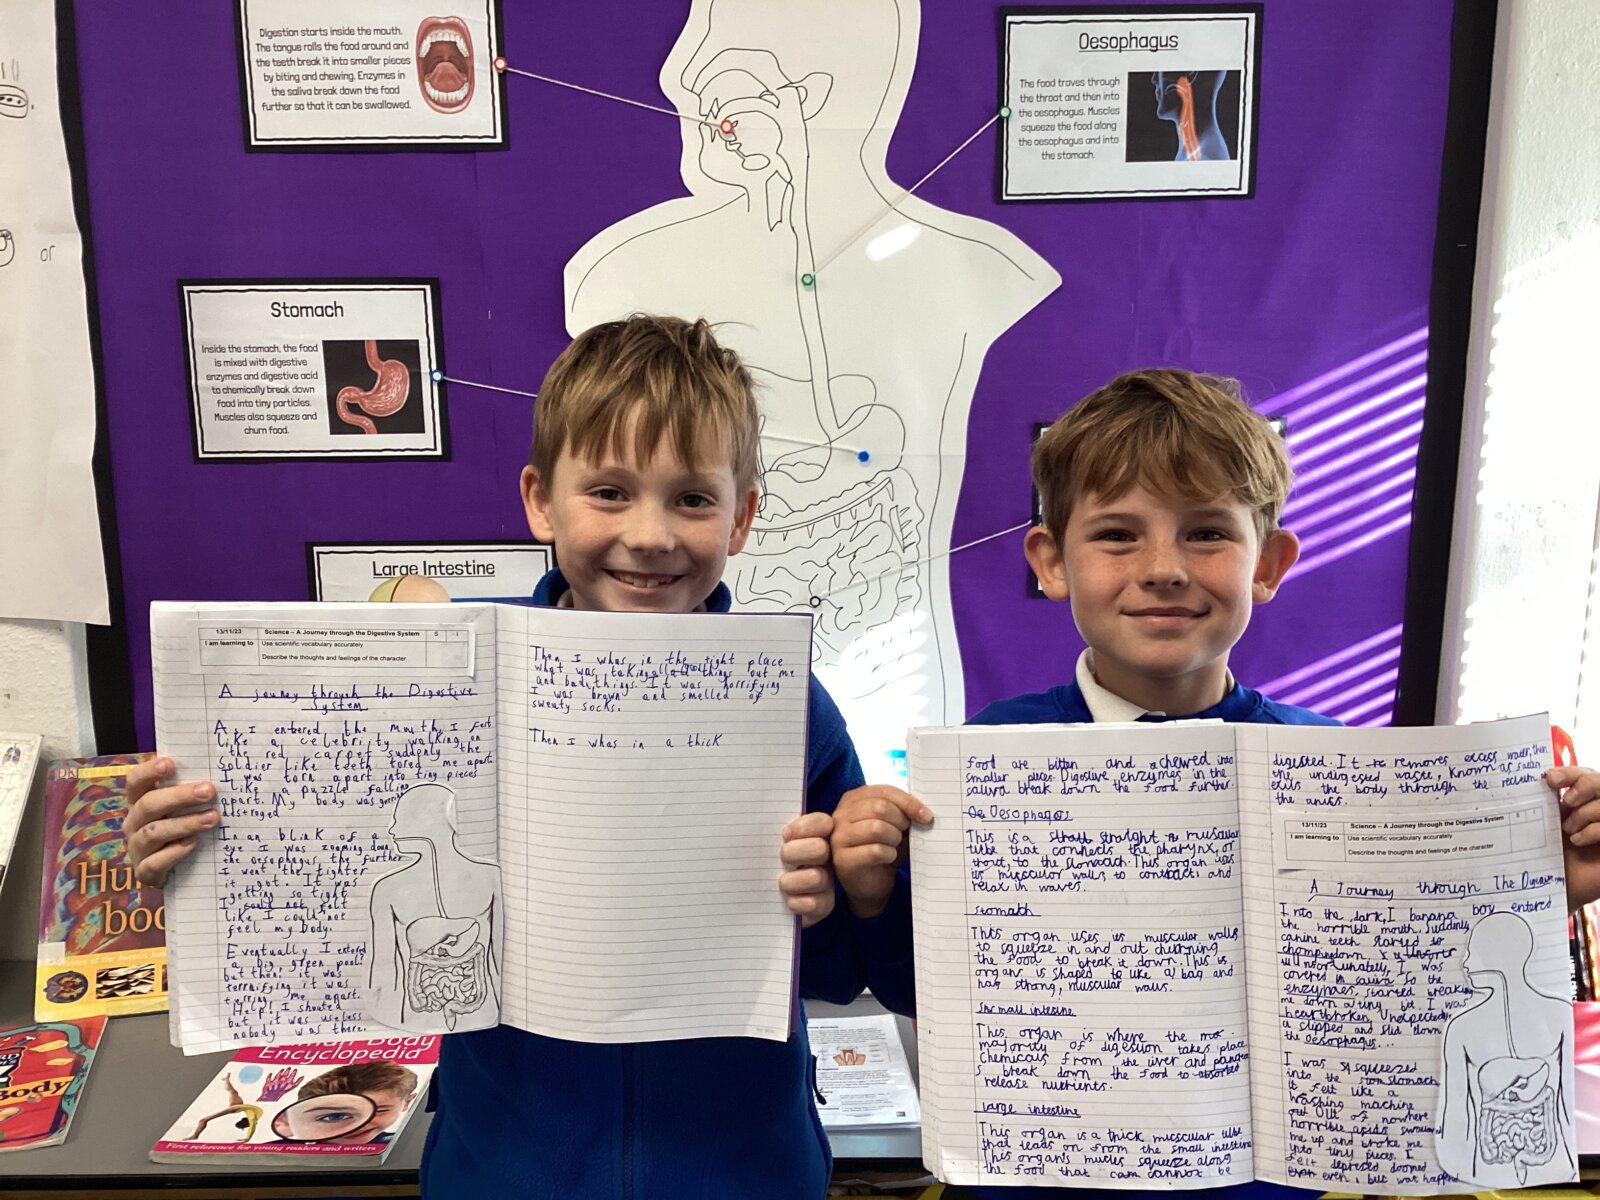 Digestion starts inside the mouth.
The tongue rolls the food around and
the teeth break it into smaller pieces
by biting and chewing. Enzymes in
the saliva break down the food
further so that it can be swallowed.
Oesophagus
The food traves through
the throat and then into
the oesophagus. Muscles
squeeze the food along
the oesophagus and into
the stomach.
or
Stomach
Inside the stomach, the food
is mixed with digestive
enzymes and digestive acid
to chemically break down
food into tiny particles.
Muscles also squeeze and
churn food.
Large Intestine
13/11/23 Science – A Journey through the Digestive System S I
I am learning to Use scientific vocabulary accurately
Describe the thoughts and feelings of the character
A journey through the Digestive
System
As I entered the mouth, I felt
like a celebrity walking on
the red carpet suddenly the
Soldier like teeth tored me apart.
I was torn apart into tiny pieces
like a puzzle falling
apart. My body was
In an blink of a
eye I was zooming down
the oesophagus the further
I went the tighter
it got. It was
getting so tight
I could not felt
like I could not
feel my body.
Eventually I entered
a big green pool?
but then it was
terrnifying it was
terring me apart.
Help! I shouted
but it was useless
nobody was there.
Then I whas in the right place
what was taking all good things out me
and bad things. It was horrifying
I was brown and smelled of
sweaty socks.
Then I whas in a thick
food are bitten and achewed into
smaller pieces. Digestive enzymes in the
saliva break down the food further.
Oe Oesophagus
This is a straight muscular
tube that connects the pharynx, or
trout, to the stomach. This organ uses
its muscular walls to contract and
relax in waves.
stomach
This organ uses its muscular walls
to squeeze in and out churning
the food to break it down. This is
organs is shaped to like a bag and
has strong, muscular walls.
Small intestine
This organ is where the mo
majority of digestion takes place
Chemicals from the liver and pancrea
s break down the food to absorbed
release nutrients.
large intestine
This organ is a thick mucscular tube
that leads on from the small intestine
This organs mucles squeeze along
the food that cam cannot be
digested. It removes excess water, then
the undigested waste, known as
exits the body through the
the anus.
13/11/23 Science – A Journey through the Digestive System S I
I am learning to Use scientific vocabulary accurately
Describe the thoughts and feelings of the character
A Journey through The
Into the dark, I banana boy entered
the horrible mouth. Suddenly
canine teeth started so
chompingdown.
unfortunately, I was
covered in saliva so the
enzymes, started breaking
me down a tiny bit I was
heartbroken. Unexpectedly,
a slipped and slid down
the oesophagus...
I was squeezed
into the stomach
it felt like a
washing machine
out of nowhere
horrible acids
me up and broke me
into tiny pieces. I
felt depresed doomed
even, but wat happend
DK
Human
body
Body
Body
Encyclopedia
First reference for young readers and writers